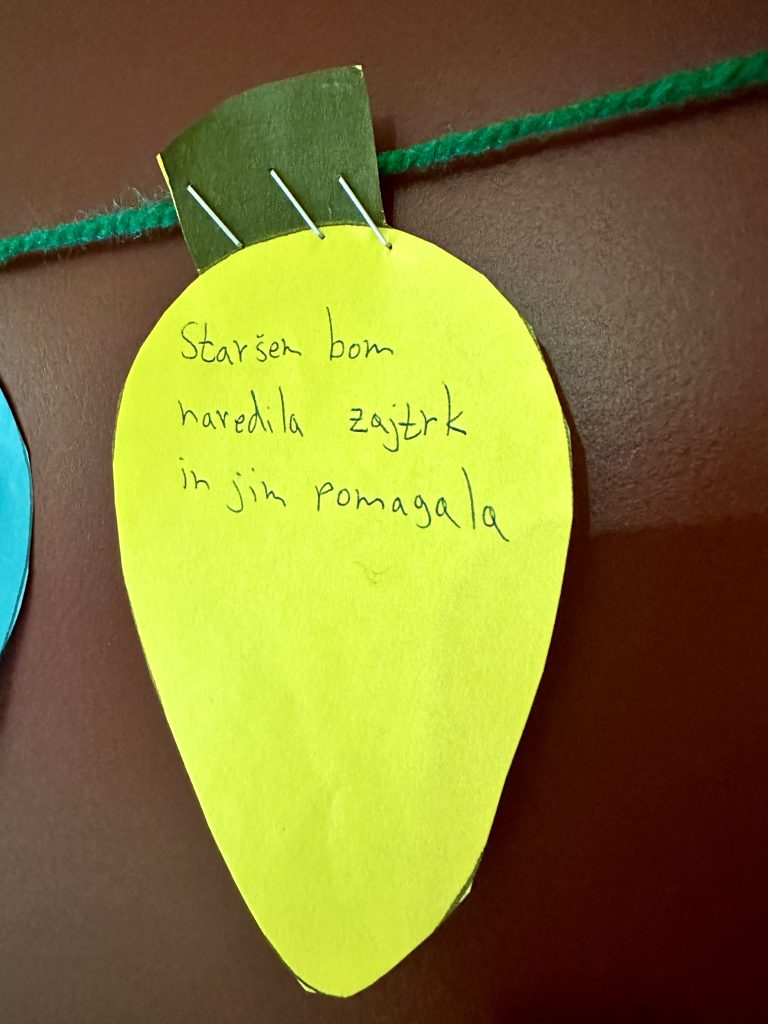 Staršem bom
naredila zajtrk
in jim pomagala